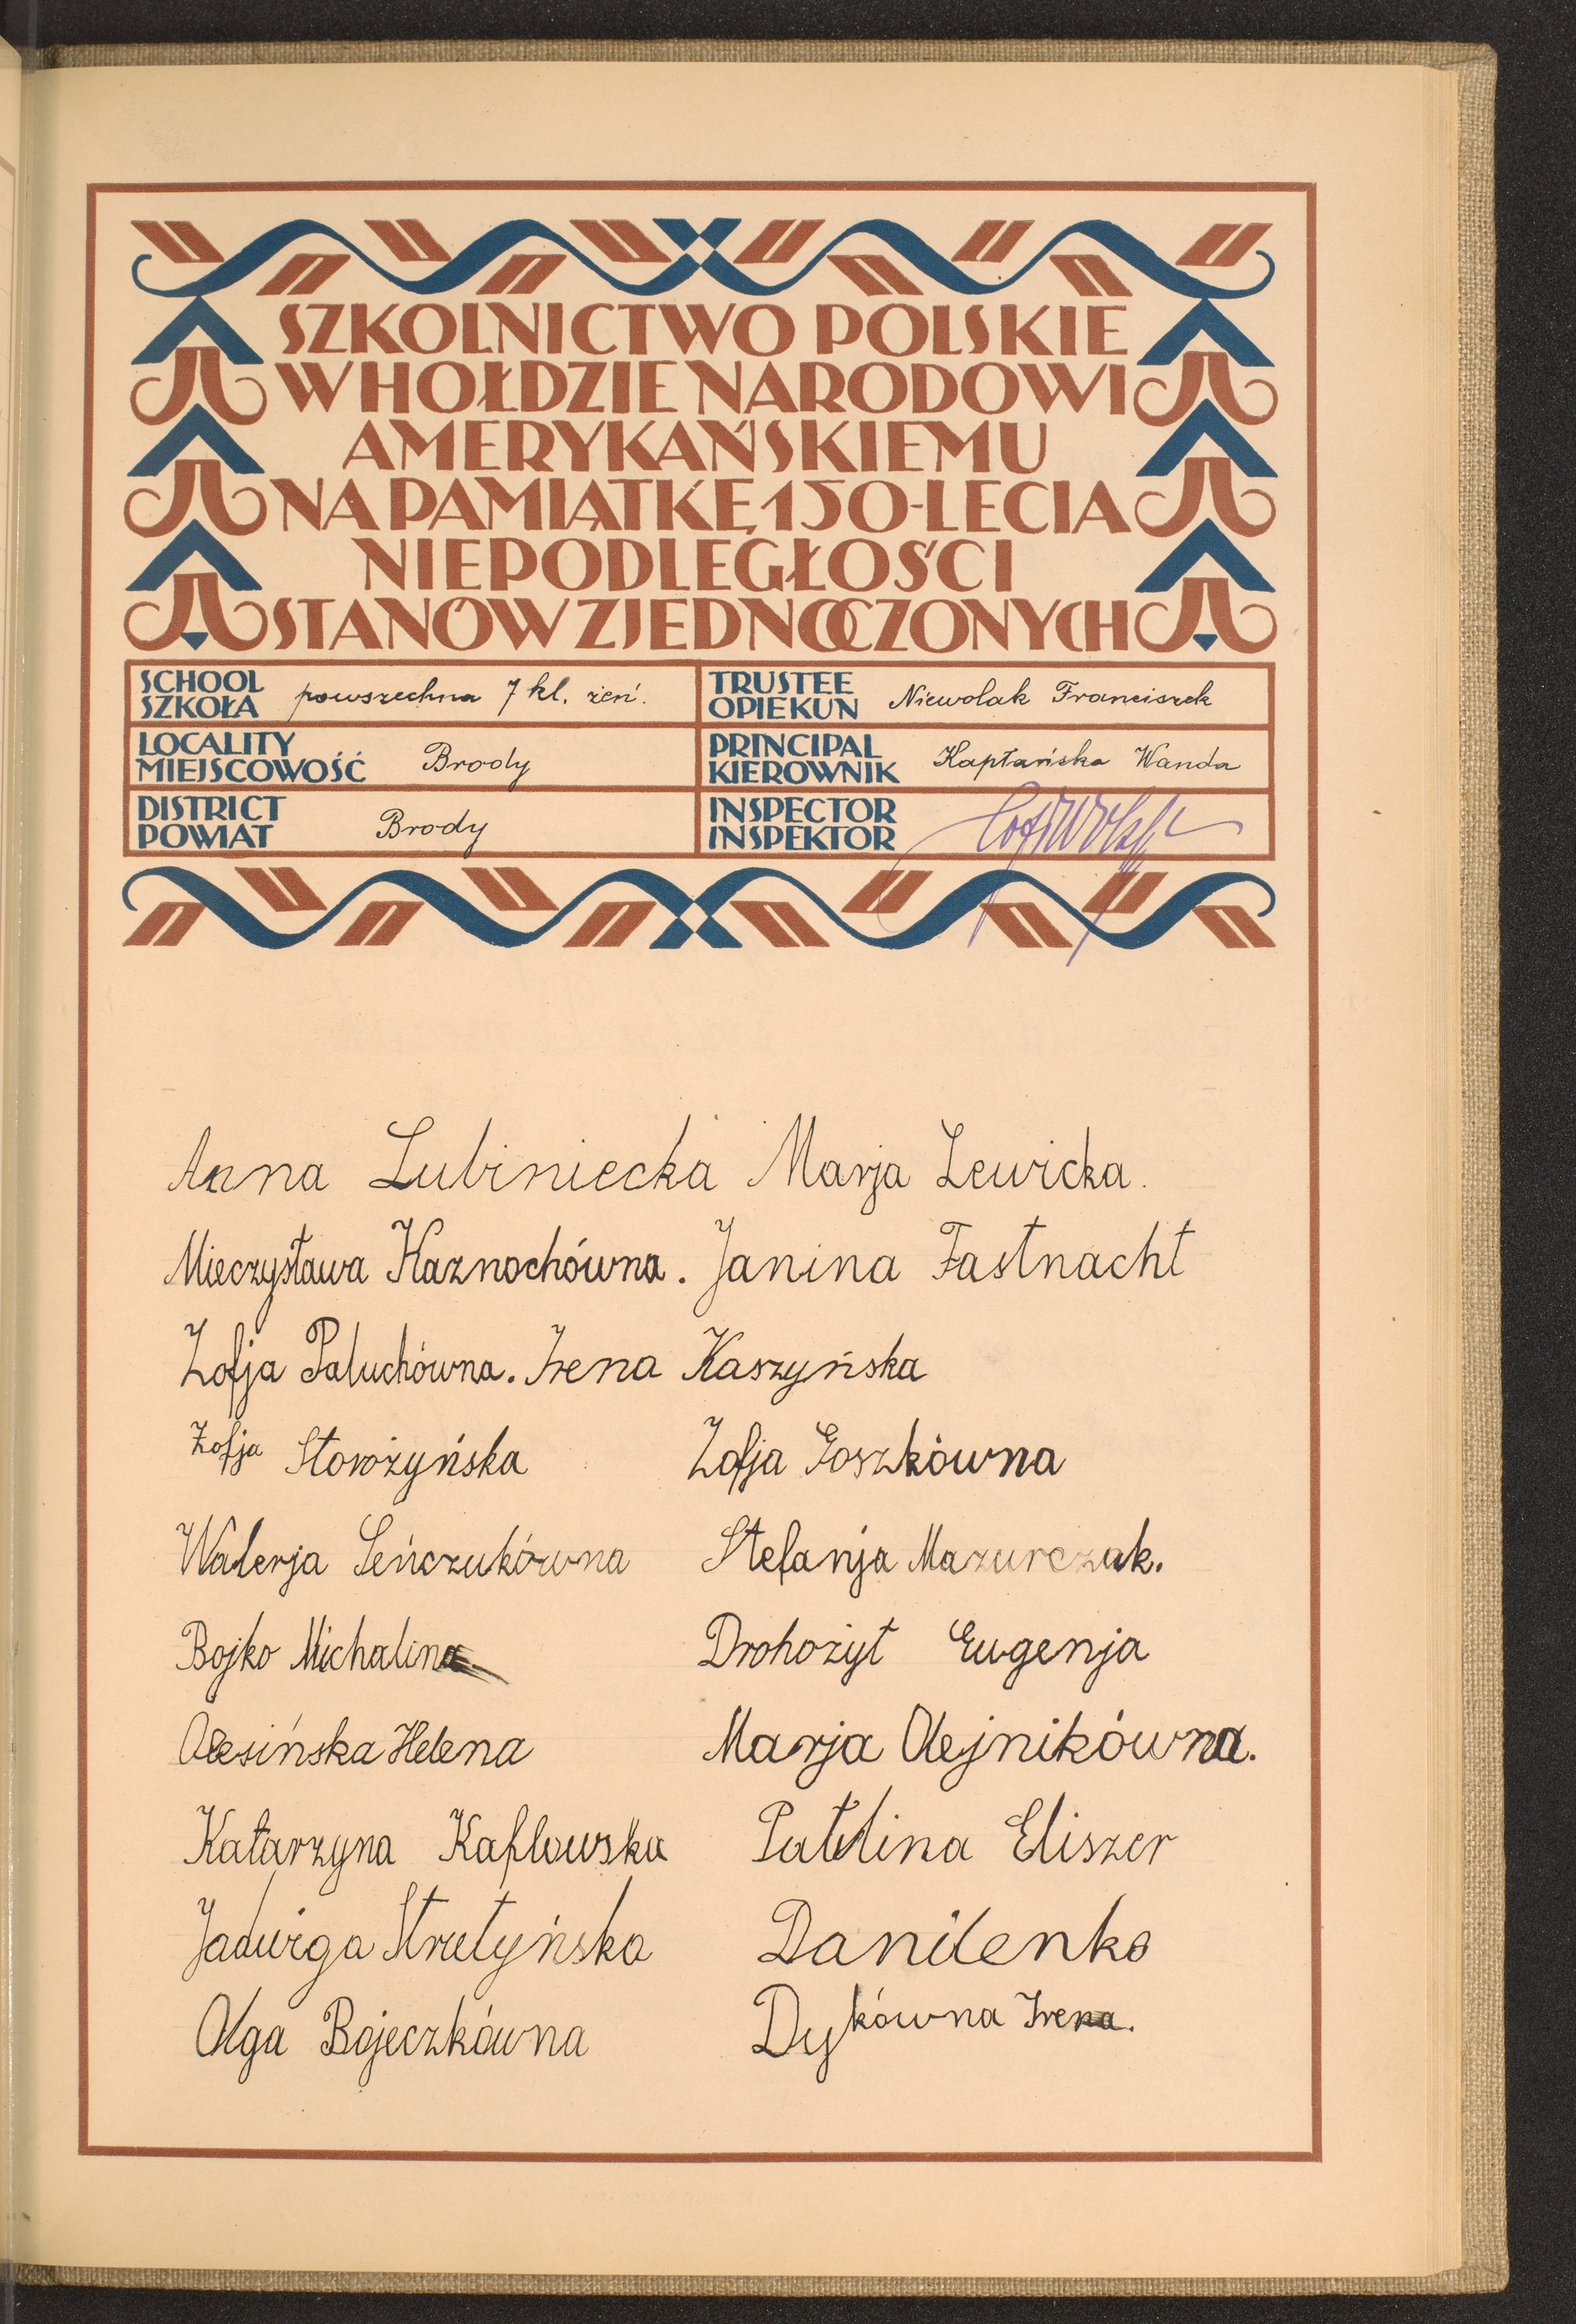 SZKOLNICTWO POLSKIE
W HOŁDZIE NARODOWI
AMERYKAŃSKIEMU
NA PAMIĄTKĘ 150-LECIA
NIEPODLEGŁOŚCI
STANÓW ZJEDNOCZONYCH
SCHOOL
SZKOŁA powszechna 7 kl. żeń.
TRUSTEE
OPIEKUN Niewolak Franciszek
LOCALITY
MIEJSCOWOŚĆ Brody
PRINCIPAL
KIEROWNIK Kapłańska Wanda
DISTRICT
POWIAT Brody
INSPECTOR
INSPEKTOR
Anna Lubiniecka Marja Lewicka.
Mieczysława Kaznochówna. Janina Fastnacht
Zofja Paluchówna. Irena Kaszyńska
Zofja Storożyńska Zofja Goszkówna
Walerja Seńczukówna Stefanja Mazurczak.
Bojko Michalina Drohożyt Eugenja
Olesińska Helena Marja Olejnikówna.
Katarzyna Kaflowska Eliszer
Jadwiga Stretyńska Danilenko
Olga Bojeczkówna Dykówna Irena.